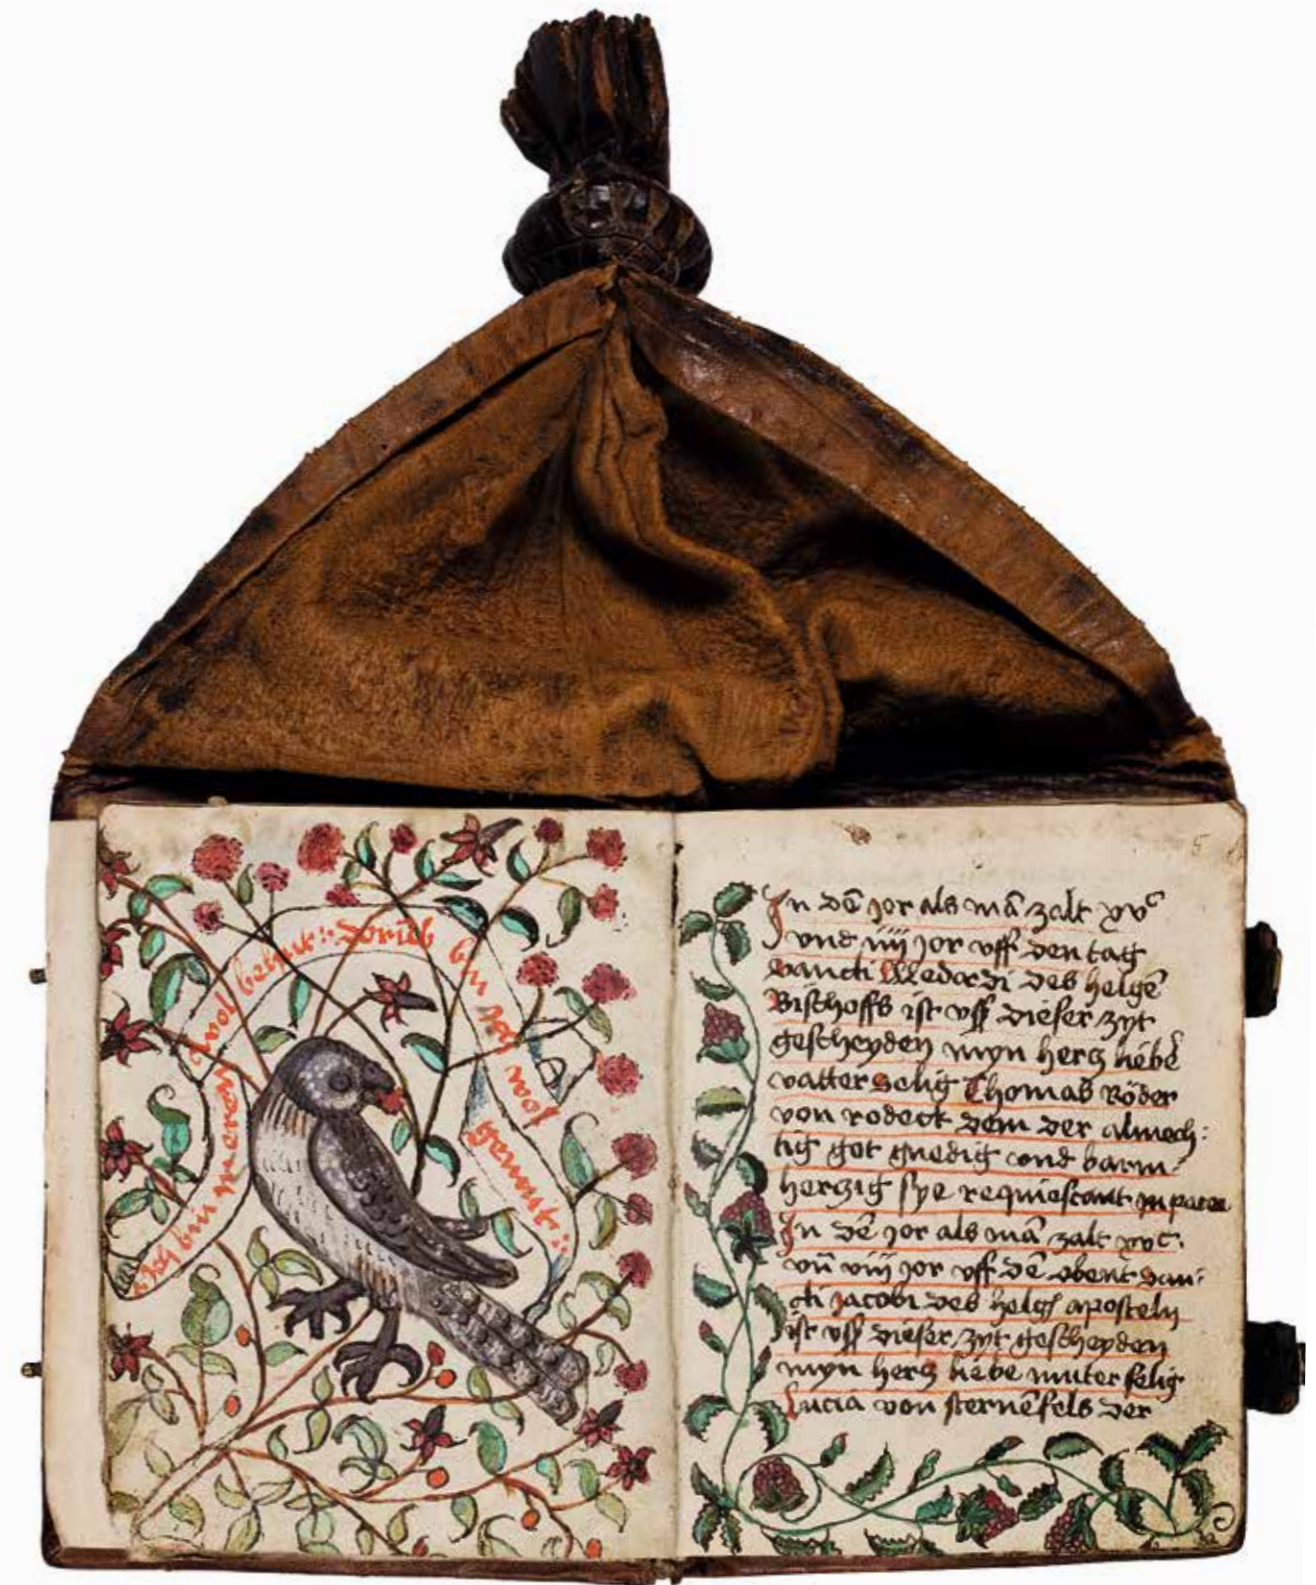 Ich bin meren wol bekant : dorumb bin ich wol genant :
5
In dē jor als mā zalt xvᶜ
vnd iiij jor vff den tag
Sancti Medardi des helgē
Bischoffs ist vß dieser zyt
gescheyden myn hercz liebē
vatter Selig Thomas Röder
von rodeck dem der almech:
tig got gnedig vnd barm-
herczig sye requiescant in pace
In dē jor als mā zalt xvc.
vn̄ viij jor vff dē obent San-
cti Jacobi des helgē aposteln
ist vß dieser zyt gescheyden
myn hercz liebe muter selig
Lucia von sternēfels der